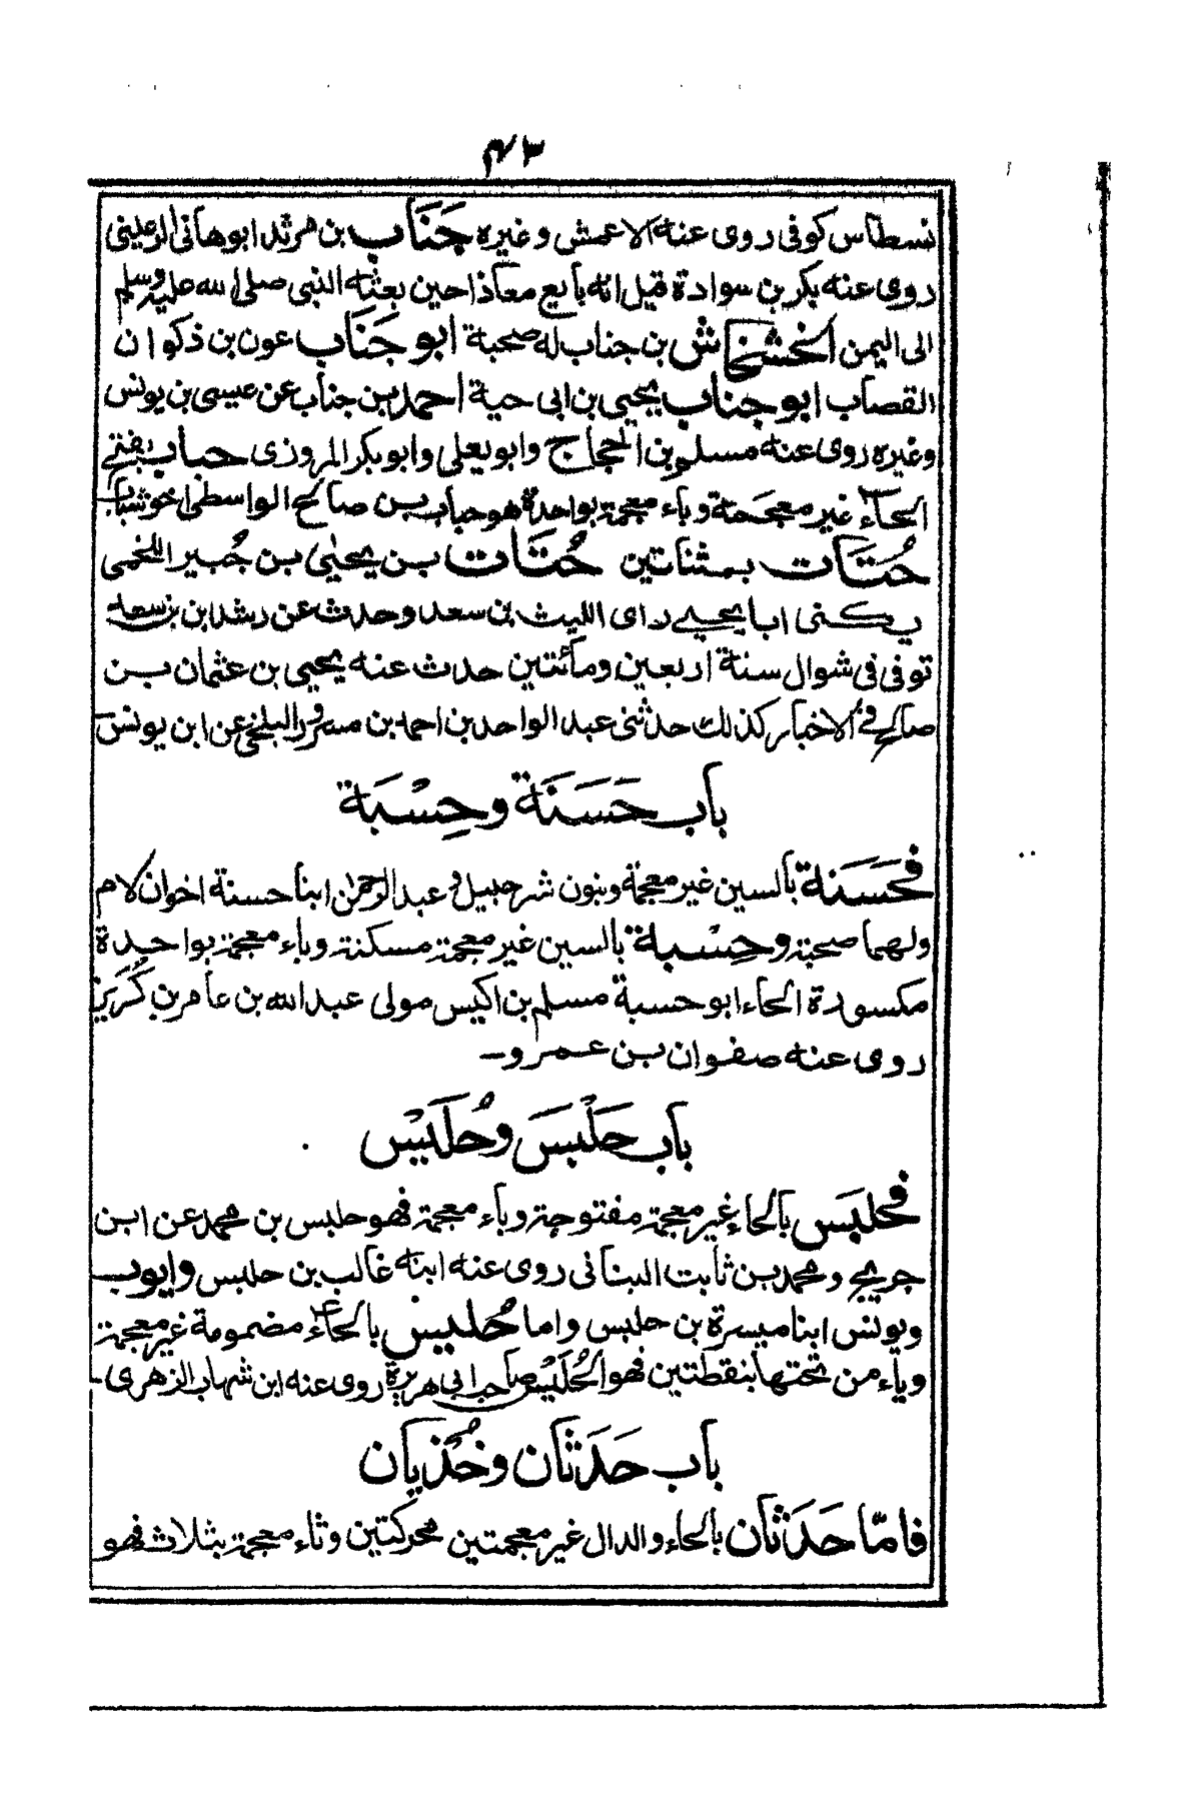 ٤٣
نسطاس كوفى روى عنه الاعمش وغيره جَنَاب بن مرثد ابوهانى الرعينى
روى عنه بكر بن سوادة قيل انه بايع معاذا حين بعثه النبى صلى الله عليه وسلم
الى اليمن الخشخاش بن جناب له صحبة ابو جَنَاب عون بن ذكوان
القصاب ابو جناب يحيى بن ابى حية احمد بن جناب عن عيسى بن يونس
وغيره روى عنه مسلم بن الحجاج وابويعلى وابوبكر المروزى حباب بفتح
الحاء غير معجمة وباء معجمة بواحدة هو حباب بن صالح الواسطى
حُتَات بمثناتين حُتَات بن يحيى بن جُبير اللخمى
يكنى ابا يحيى راى الليث بن سعد وحدث عن رشدين بن سعد
توفى فى شوال سنة اربعين ومائتين حدث عنه يحيى بن عثمان بن
صالح فى الاخبار كذلك حدثنى عبد الواحد بن احمد بن مسرور البلخى عن ابن يونس
باب حَسَنَة وحِسْبَة
فحَسَنة بالسين غير معجمة وبنون شرحبيل و عبد الرحمن ابنا حسنة اخوان لام
ولهما صحبة وحِسْبة بالسين غير معجمة مسكنة وباء معجمة بواحدة
مكسورة الحاء ابو حسبة مسلم بن اكيس مولى عبد الله بن عامر بن كُرَيز
روى عنه صفوان بن عمرو
باب حَلْبَس وحُلَيْس
فحلبَس بالحاء غير معجمة مفتوحة وباء معجمة فهو حلبس بن محمد عن ابن
جريج ومحمد بن ثابت البنانى روى عنه ابنه غالب بن حلبس وايوب
ويونس ابنا ميسرة بن حلبس واما حُليس بالحاء مضمومة غير معجمة
وياء من تحتها بنقطتين فهو الحُلَيْس صاحب ابى هريرة روى عنه ابن شهاب الزهرى
باب حَدَثَان وخُذيان
فامّا حَدَثَان بالحاء والدال غير معجمتين محركتين وثاء معجمة بثلاث فهو